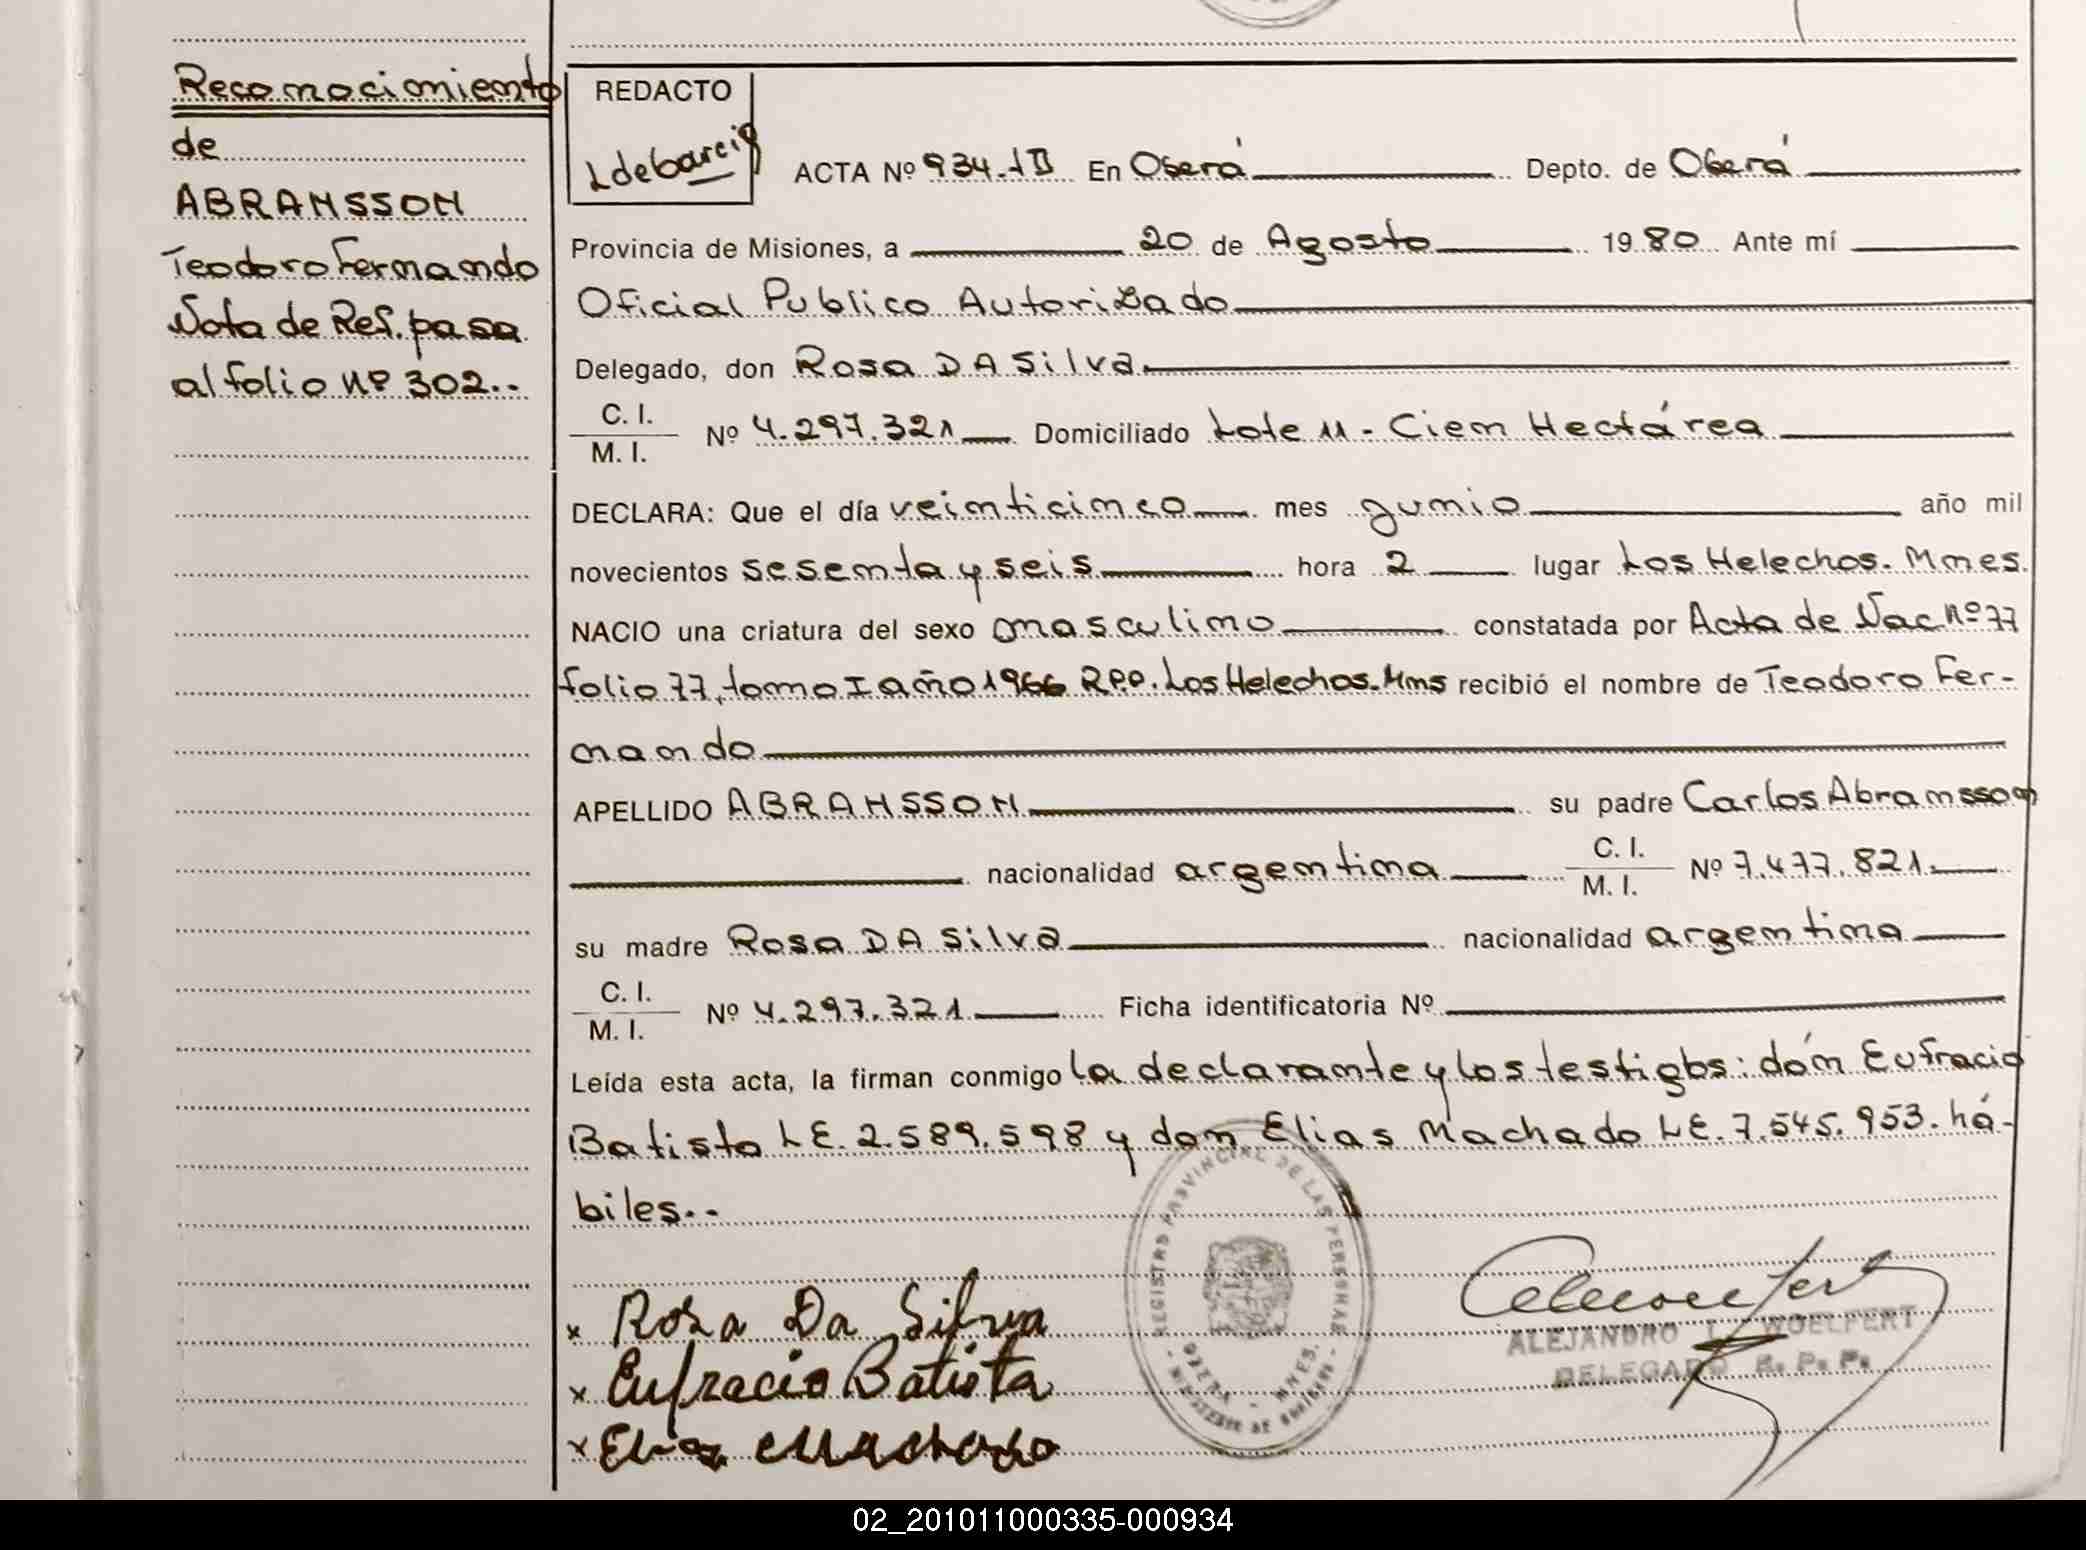 Reconocimiento
de
ABRANSSON
Teodoro Fernando
Nota de Ref. pasa
al folio Nº 302..
REDACTO
ACTA Nº 934-1B En Oberá Depto. de Oberá
Provincia de Misiones, a 20 de Agosto 1980 Ante mí
Oficial Publico Autorizado
Delegado, don Rosa DA Silva
C. I.
M. I.
Nº 4.297.321 Domiciliado Lote 11 - Cien Hectárea
DECLARA: Que el día veinticinco mes junio año mil
novecientos sesenta y seis hora 2 lugar Los Helechos. Mnes.
NACIO una criatura del sexo masculino constatada por Acta de Nac Nº 77
folio 77, tomo I año 1966 R.P.P. Los Helechos. Mns recibió el nombre de Teodoro Fer-
nando
APELLIDO ABRANSSON su padre Carlos Abransson
nacionalidad argentina C. I.
M. I. Nº 7.477.821.
su madre Rosa DA Silva nacionalidad argentina
C. I.
M. I.
Nº 4.297.321 Ficha identificatoria Nº
Leída esta acta, la firman conmigo la declarante y los testigos: don Eufracio
Batista L.E. 2.589.598 y don Elias Machado L.E. 7.545.953. há-
biles..
REGISTRO PROVINCIAL DE LAS PERSONAS
OBERA - MNES.
- MINISTERIO DE GOBIERNO -
x Rosa Da Silva
x Eufracio Batista
x Elias Machado
ALEJANDRO L. WOELFERT
DELEGADO R. P. P.
02_201011000335-000934